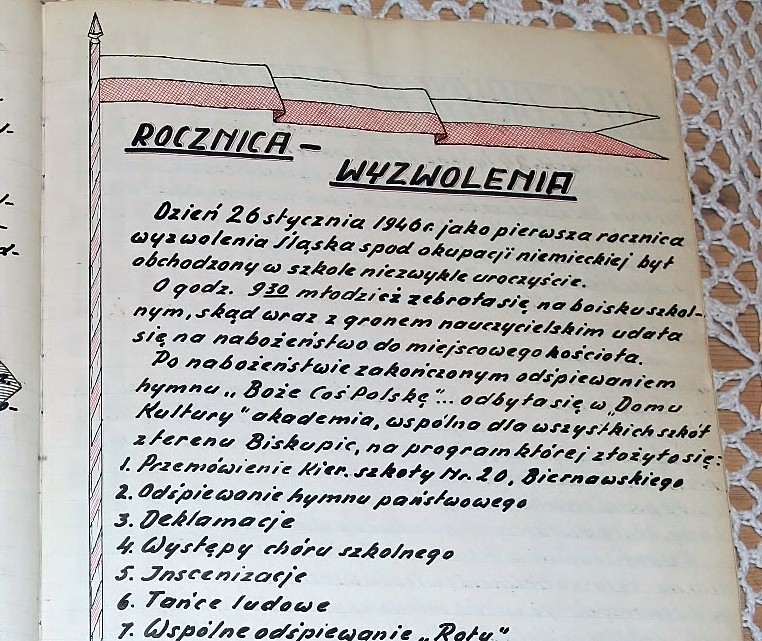 ROCZNICA –
WYZWOLENIA
Dzień 26 stycznia 1946r. jako pierwsza rocznica
wyzwolenia Śląska spod okupacji niemieckiej był
obchodzony w szkole niezwykle uroczyście.
O godz. 9 30 młodzież zebrała się na boisku szkol-
nym, skąd wraz z gronem nauczycielskim udała
się na nabożeństwo do miejscowego kościoła.
Po nabożeństwie zakończonym odśpiewaniem
hymnu „Boże Coś Polskę"... odbyła się w „Domu
Kultury" akademia, wspólna dla wszystkich szkół
z terenu Biskupic, na program której złożyło się:
1. Przemówienie kier. szkoły Nr. 20, Biernawskiego
2. Odśpiewanie hymnu państwowego
3. Deklamacje
4. Występy chóru szkolnego
5. Inscenizacje
6. Tańce ludowe
7. Wspólne odśpiewanie „Roty"